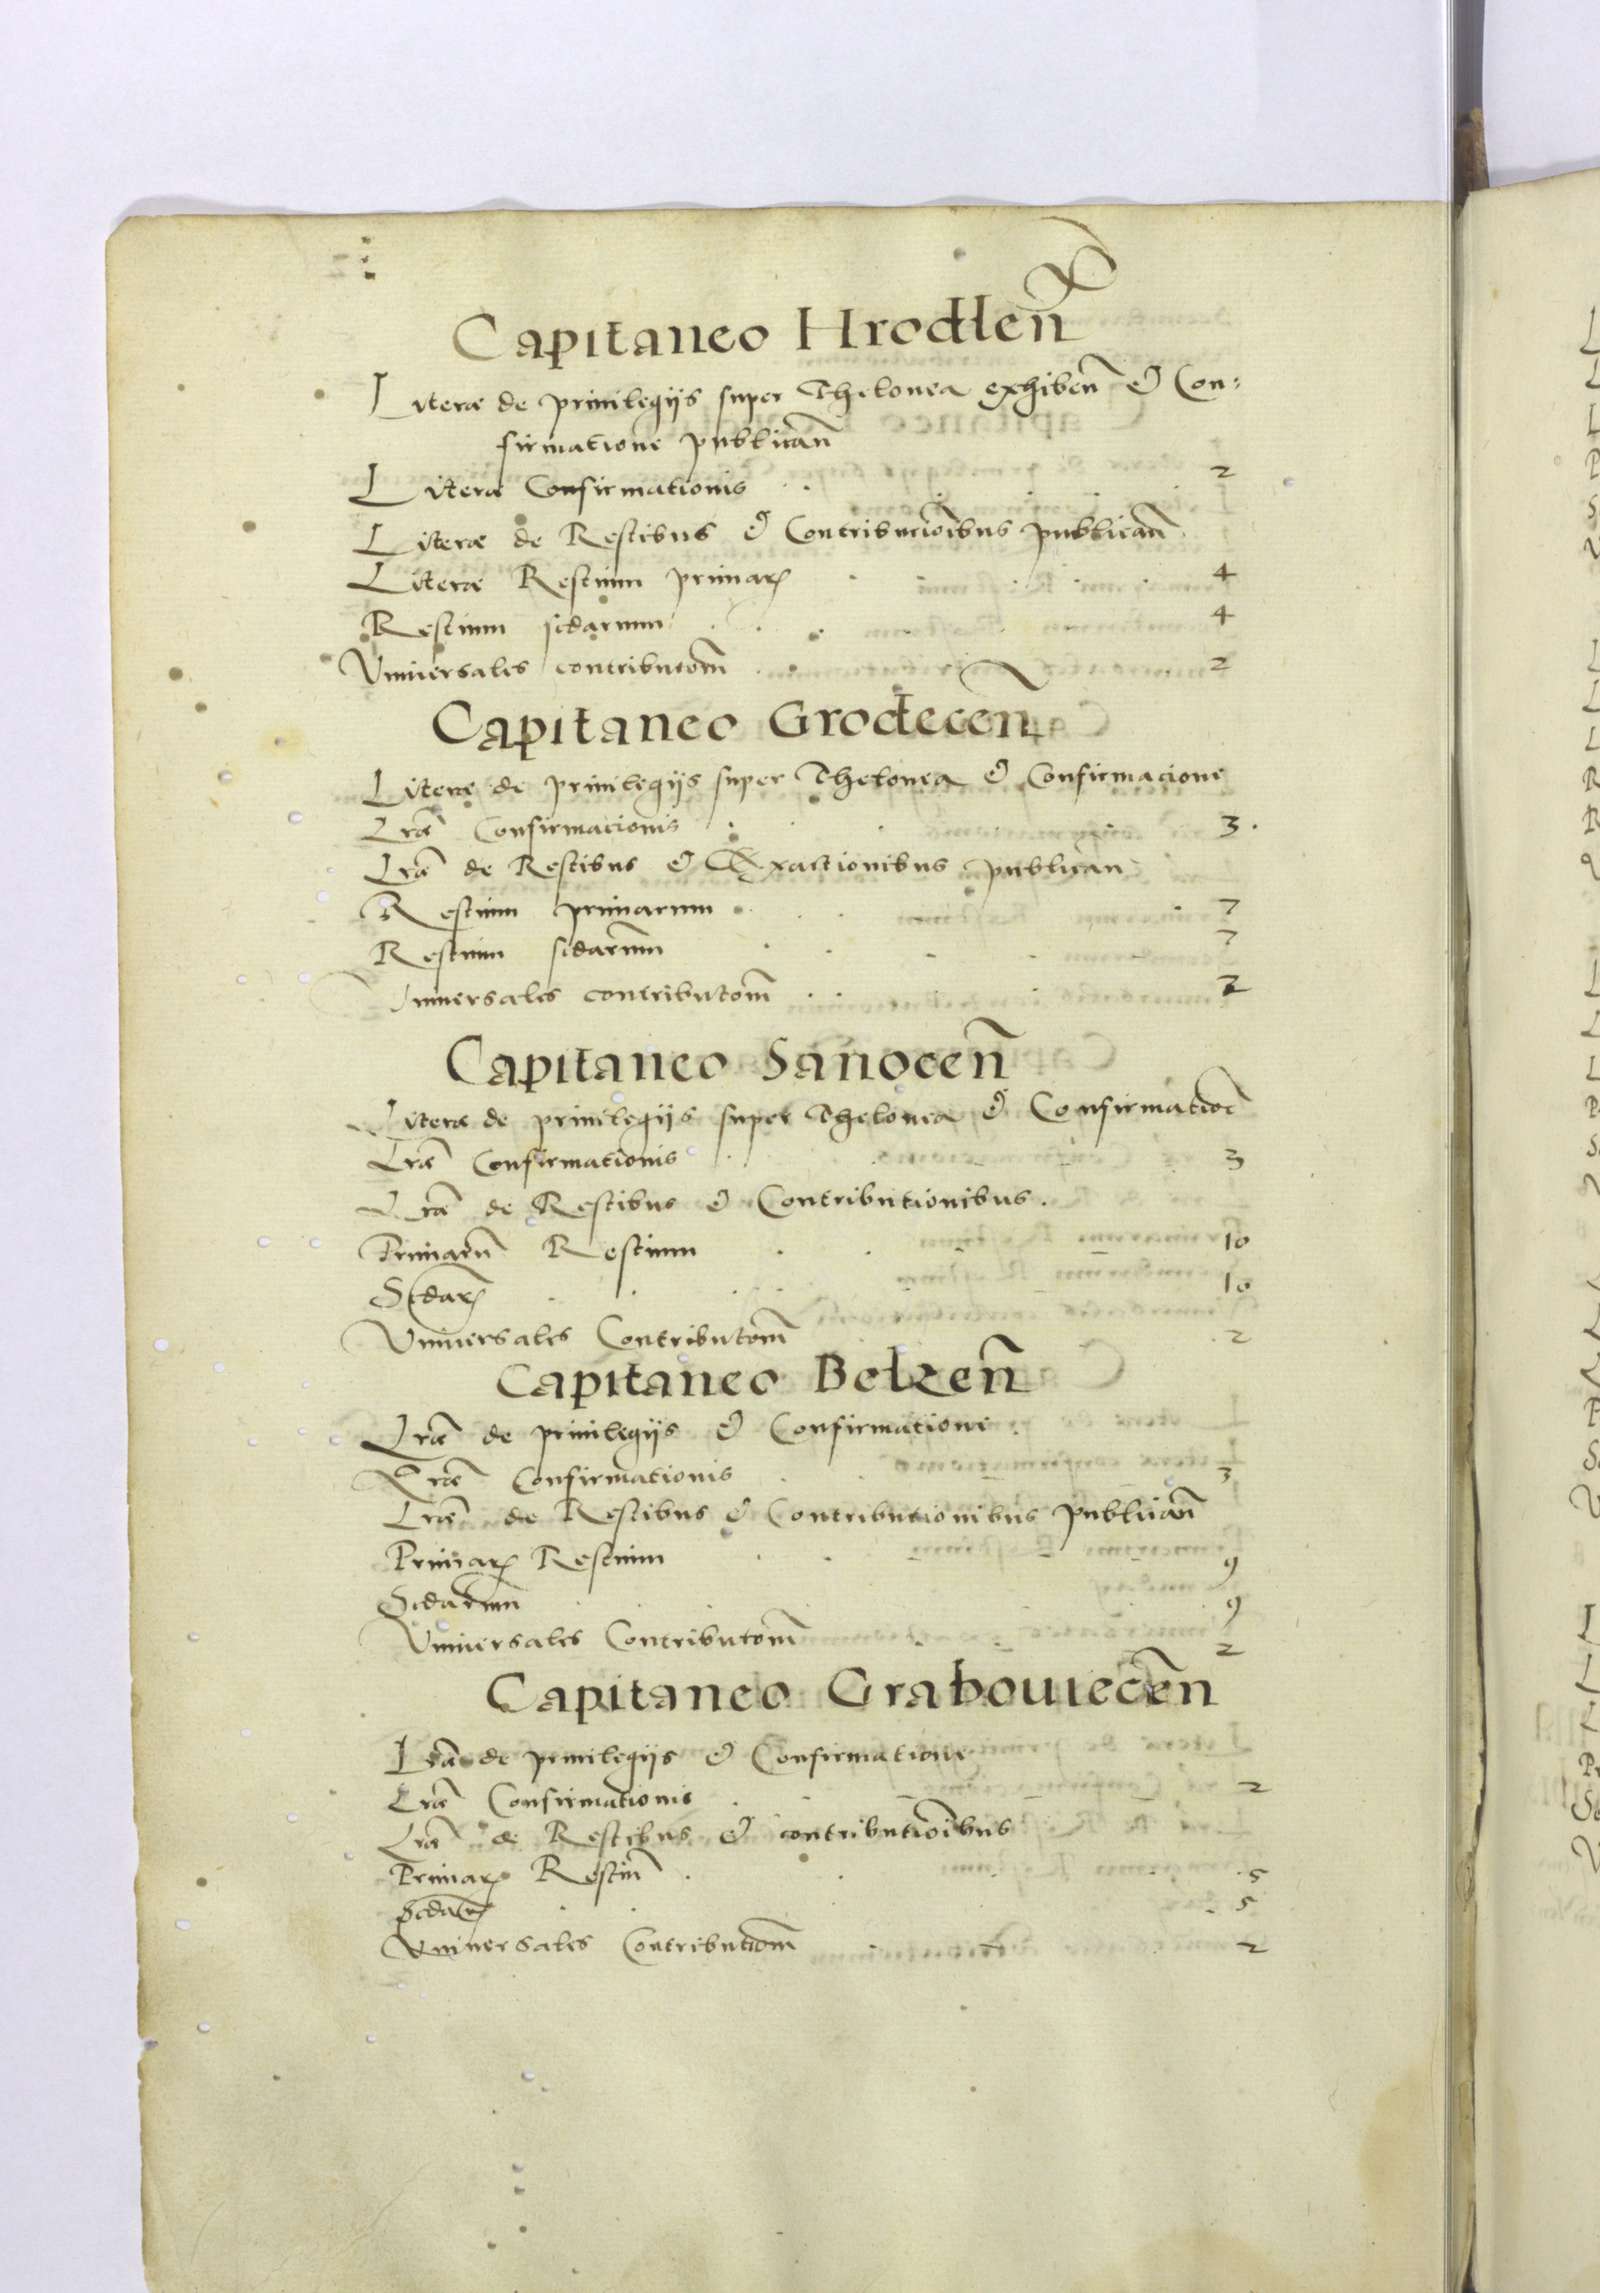 Capitaneo Hrodlen̄
Literæ de priuilegijs super Thelonea exhiben̄ et Con:
firmatione publican̄
Literæ Confirmationis 2
Literæ de Restibus et Contribucioībus publican̄
Literæ Restium primaꝝ 4
Restium scdarum 4
Vniuersales contributom̄ 2
Capitaneo Grodecen̄
Literæ de priuilegijs super Thelonea et Confirmacione
Lrǣ Confirmacionis 3
Lrǣ de Restibus et Exactionibus publican
Restium primarum 7
Restium scdarum̄ 7
Vniuersales contributom̄ 2
Capitaneo Sanocen̄
Literæ de priuilegijs super Thelonea et Confirmatioē
Lrǣ Confirmationis 3
Lrǣ de Restibus et Contributionibus.
Primarū Restium 10
Scdaꝝ 10
Vniuersales Contributom̄ 2
Capitaneo Belzen̄
Lrǣ de priuilegijs et Confirmatione
Lrǣ Confirmationis 3
Lrǣ de Restibus et Contributionibus publican̄
Primaꝝ Restium 9
Scdarum 9
Vniuersales Contributom̄ 2
Capitaneo Grabouiecēn
Lrǣ de priuilegijs et Confirmatione
Lrǣ Confirmationis 2
Lrǣ de Restibus et contributioībus
Primaꝝ Restiū 5
Scdaꝝ 5
Vniuersales Contributiom̄ 2